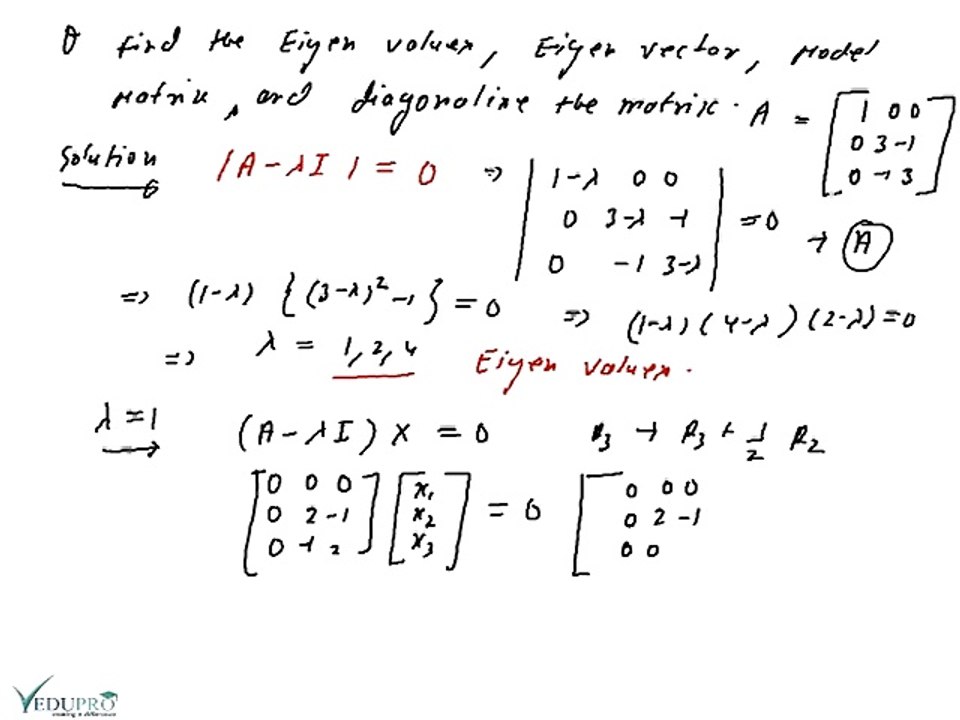 Q find the Eigen values, Eigen vector, Model
Matrix, and diagonalize the matrix. A = [1 0 0
0 3 -1
0 -1 3]
Solution |A-λI| = 0 => |1-λ 0 0
0 3-λ -1
0 -1 3-λ| = 0 → A
=> (1-λ) {(3-λ)² -1} = 0 => (1-λ)(4-λ)(2-λ)=0
=> λ = 1, 2, 4 Eigen values.
λ=1 (A-λI) X = 0 R₃ → R₃ + 1/2 R₂
[0 0 0
0 2 -1
0 -1 2] [x₁
x₂
x₃] = 0 [0 0 0
0 2 -1
0 0
VEDUPRO